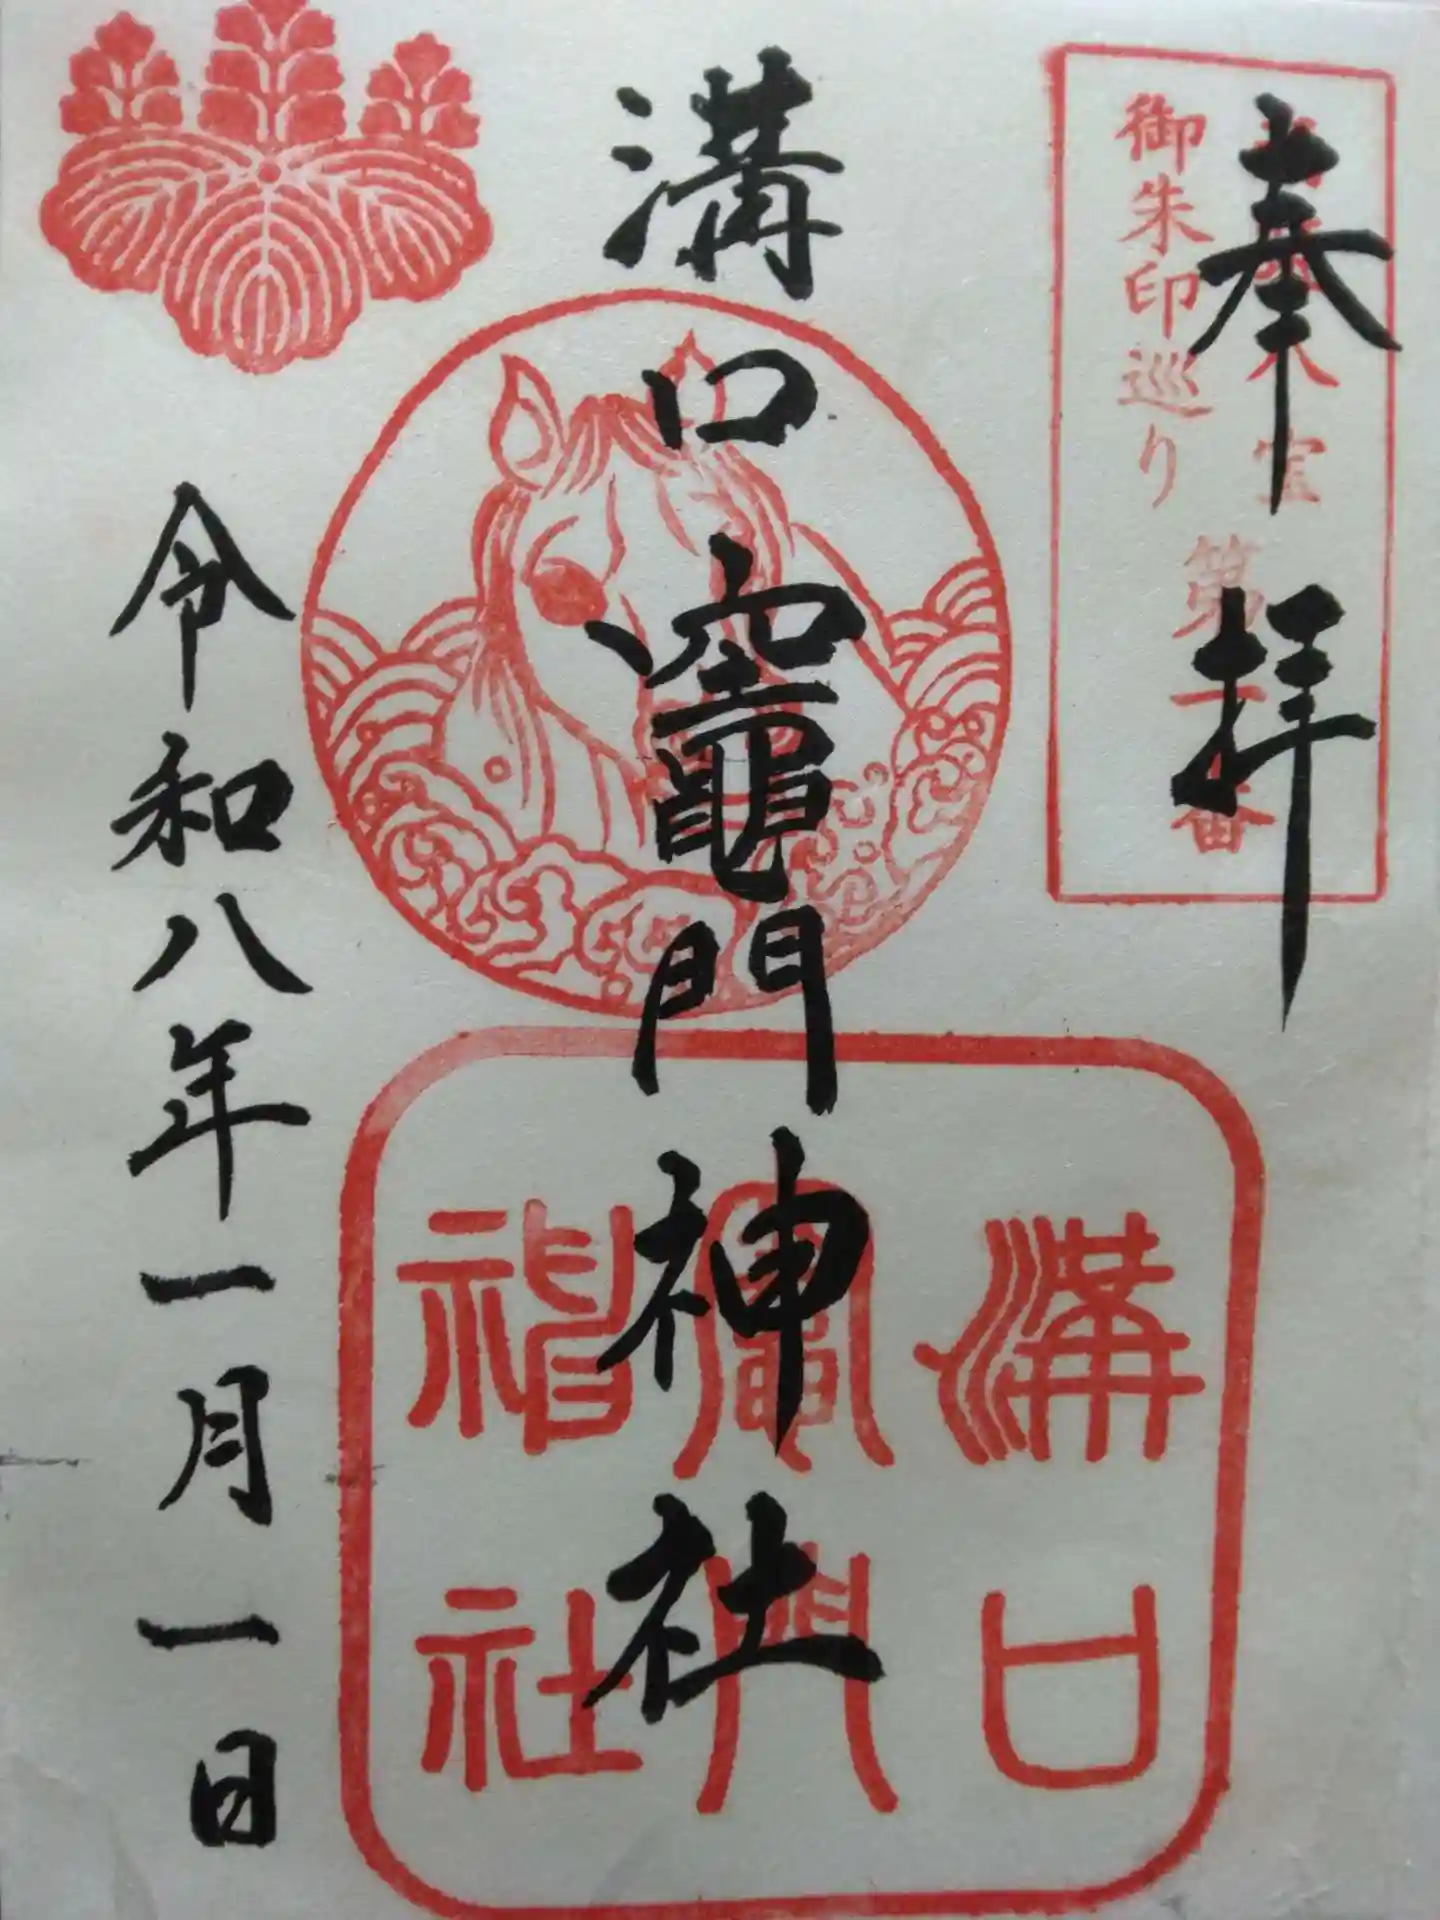 奉拝
御朱印巡り
溝口竈門神社
溝口
竈門
神社
令和八年一月一日